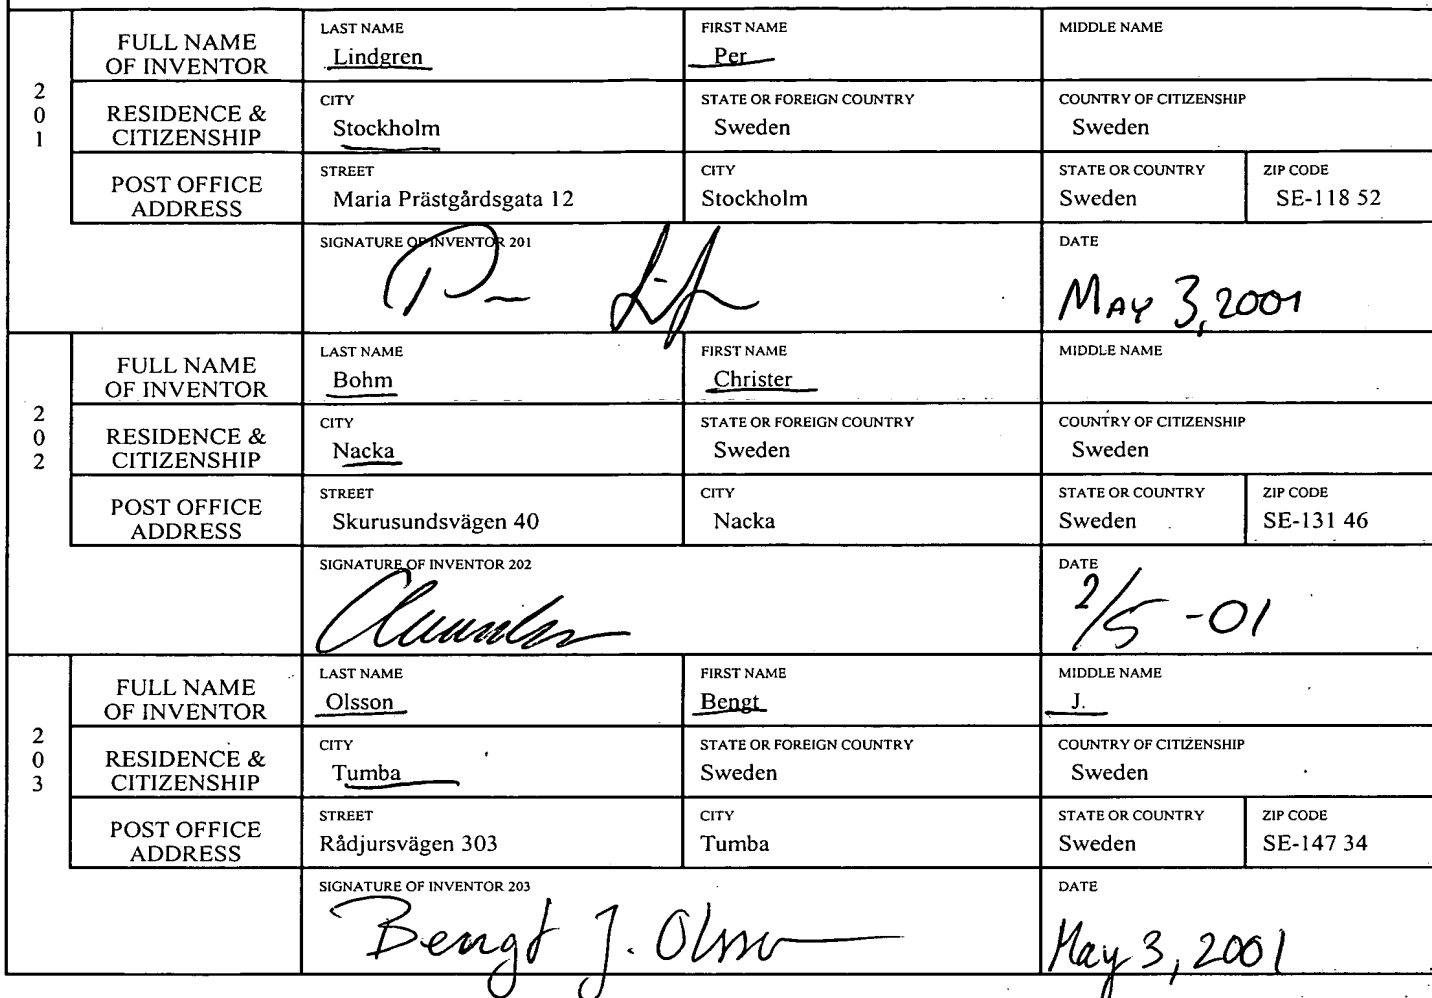 FULL NAME OF INVENTOR
LAST NAME
Lindgren
FIRST NAME
Per
MIDDLE NAME
201
RESIDENCE & CITIZENSHIP
CITY
Stockholm
STATE OR FOREIGN COUNTRY
Sweden
COUNTRY OF CITIZENSHIP
Sweden
POST OFFICE ADDRESS
STREET
Maria Prästgårdsgata 12
CITY
Stockholm
STATE OR COUNTRY
Sweden
ZIP CODE
SE-118 52
SIGNATURE OF INVENTOR 201
DATE
May 3, 2001
FULL NAME OF INVENTOR
LAST NAME
Bohm
FIRST NAME
Christer
MIDDLE NAME
202
RESIDENCE & CITIZENSHIP
CITY
Nacka
STATE OR FOREIGN COUNTRY
Sweden
COUNTRY OF CITIZENSHIP
Sweden
POST OFFICE ADDRESS
STREET
Skurusundsvägen 40
CITY
Nacka
STATE OR COUNTRY
Sweden
ZIP CODE
SE-131 46
SIGNATURE OF INVENTOR 202
DATE
2/5 -01
FULL NAME OF INVENTOR
LAST NAME
Olsson
FIRST NAME
Bengt
MIDDLE NAME
J.
203
RESIDENCE & CITIZENSHIP
CITY
Tumba
STATE OR FOREIGN COUNTRY
Sweden
COUNTRY OF CITIZENSHIP
Sweden
POST OFFICE ADDRESS
STREET
Rådjursvägen 303
CITY
Tumba
STATE OR COUNTRY
Sweden
ZIP CODE
SE-147 34
SIGNATURE OF INVENTOR 203
Bengt J. Olsson
DATE
May 3, 2001